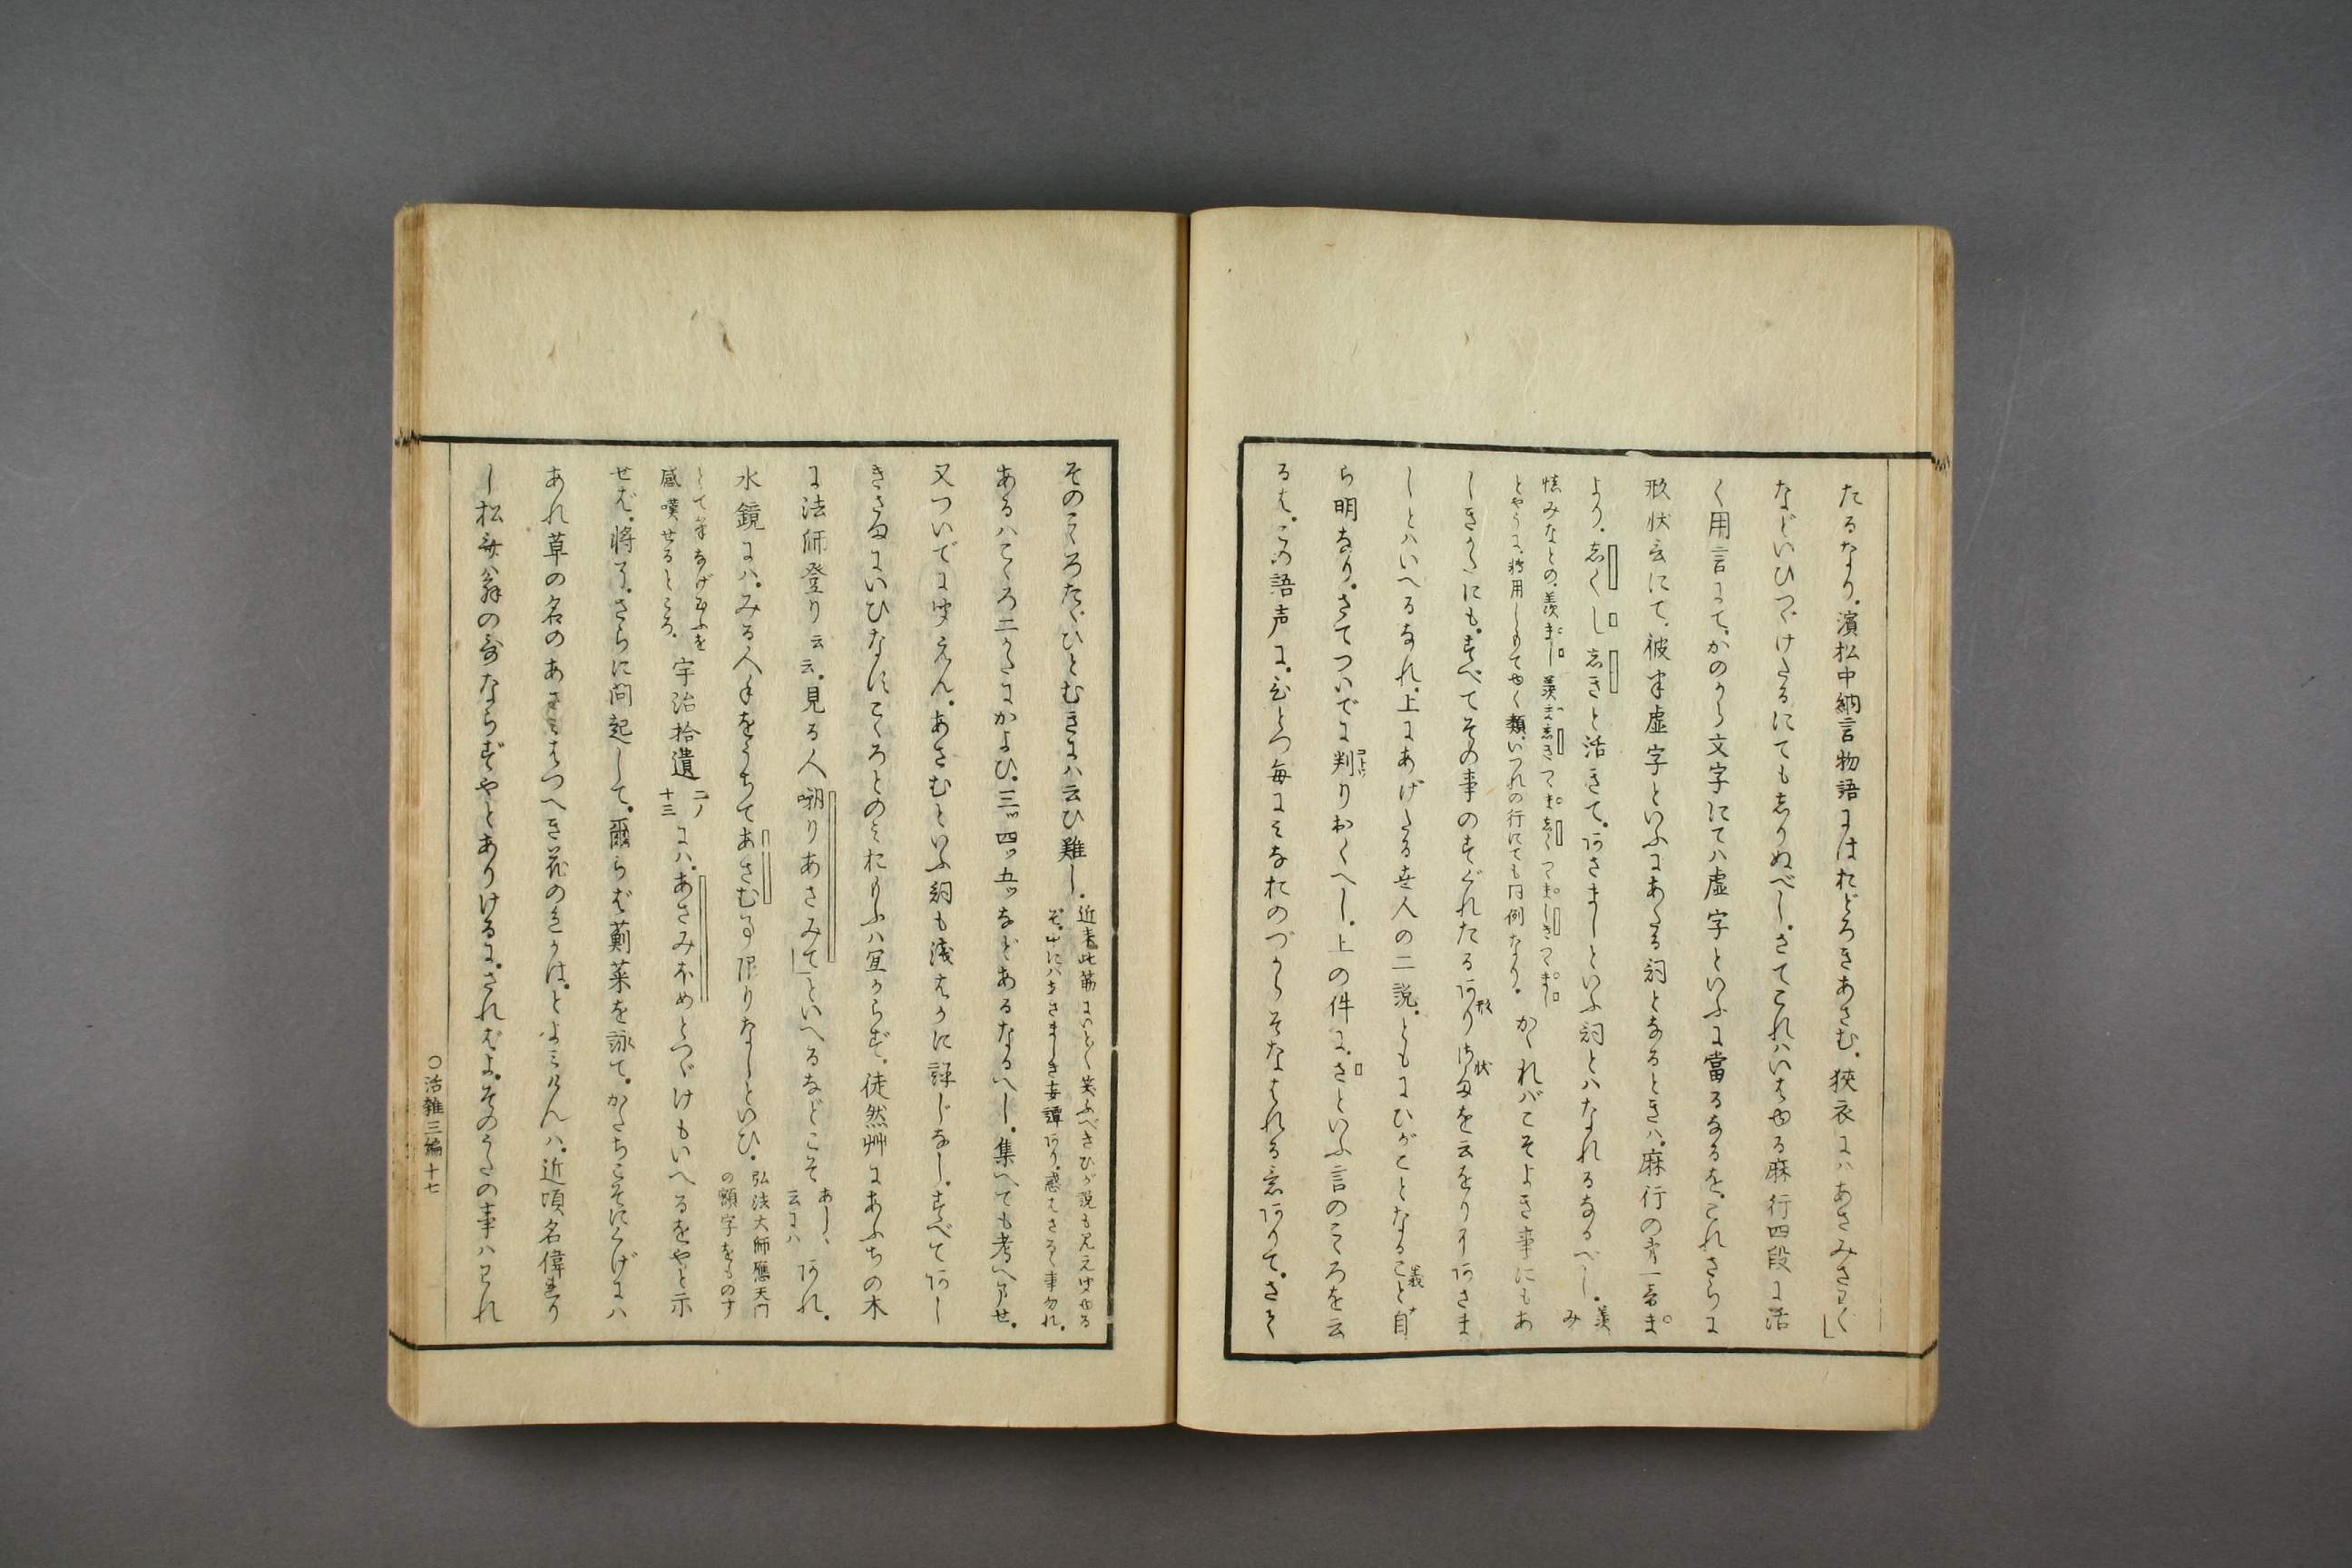 たるなり。濱松中納言物語にはおどろきあさむ。狹衣にハあさみさわぐ」
などいひつゞけたるにてもしりぬべし。さてこれハいはゆる麻行四段に活
く用言にて。かのから文字にてハ虚字といふに當るなるを。これさらに
形状言にて。彼半虚字といふにあたる詞となるときハ。麻行の第一音ま
より。しくし しきと活きて。あさましといふ詞とハなれるなるべし。羨み
惜みなとの。羨まし 羨ましき つましく つましき つまし
とやうに。轉用しもてゆく類。いつれの行にても同例なり。かゝれバこそよき事にもあ
しきかたにも。すべてその事のすぐれたるあり形さま状を云をりにあさま
しとハいへるなれ。上にあげたる先人の二説。ともにひがことなること自
ら明なり。さてついでに判りおくべし。上の件に。さといふ言のこゝろを云
るは。この語声に。ひとつ毎にみなおのづからそなはれる意ありて。さる
そのこゝろたゞひとむきにハ云ひ難し。
近来此筋にいとゝ笑ふべきひが説も見えゆめる
ぞ。中にハあさましき妄譚あり。惑はさるゝ事勿れ。
あるハこゝろ二かたにかよひ。三ッ四ッ五ッなどあるなるべし。集へても考へ見せ。
又ついでに聞えん。あさむといふ詞も淺はかに評じなし。すべてあし
きさまにいひなすこゝろとのみおもふハ宜からず。徒然艸にあふちの木
に法師登り云云。見る人嘲りあさみて」といへるなどこそあしく云にハあれ。
水鏡にハ。みる人手をうちてあさむ事限りなしといひ。
弘法大師應天門
の額字をものす
とて筆なげ給ふを
感嘆せるところ。
宇治拾遺二ノ十三にハ。あさみほめとつゞけもいへるをやと示
せば。將了。さらに問起して。爾らば薊菜を詠て。かたちこそにくげにハ
あれ草の名のあざみはつべき花のきかは。とよみけんハ。近頃名偉き
し松翁の哥ならずやとありけるに。さればよ。そのうたの事ハわれ
〇活雜三編 十七